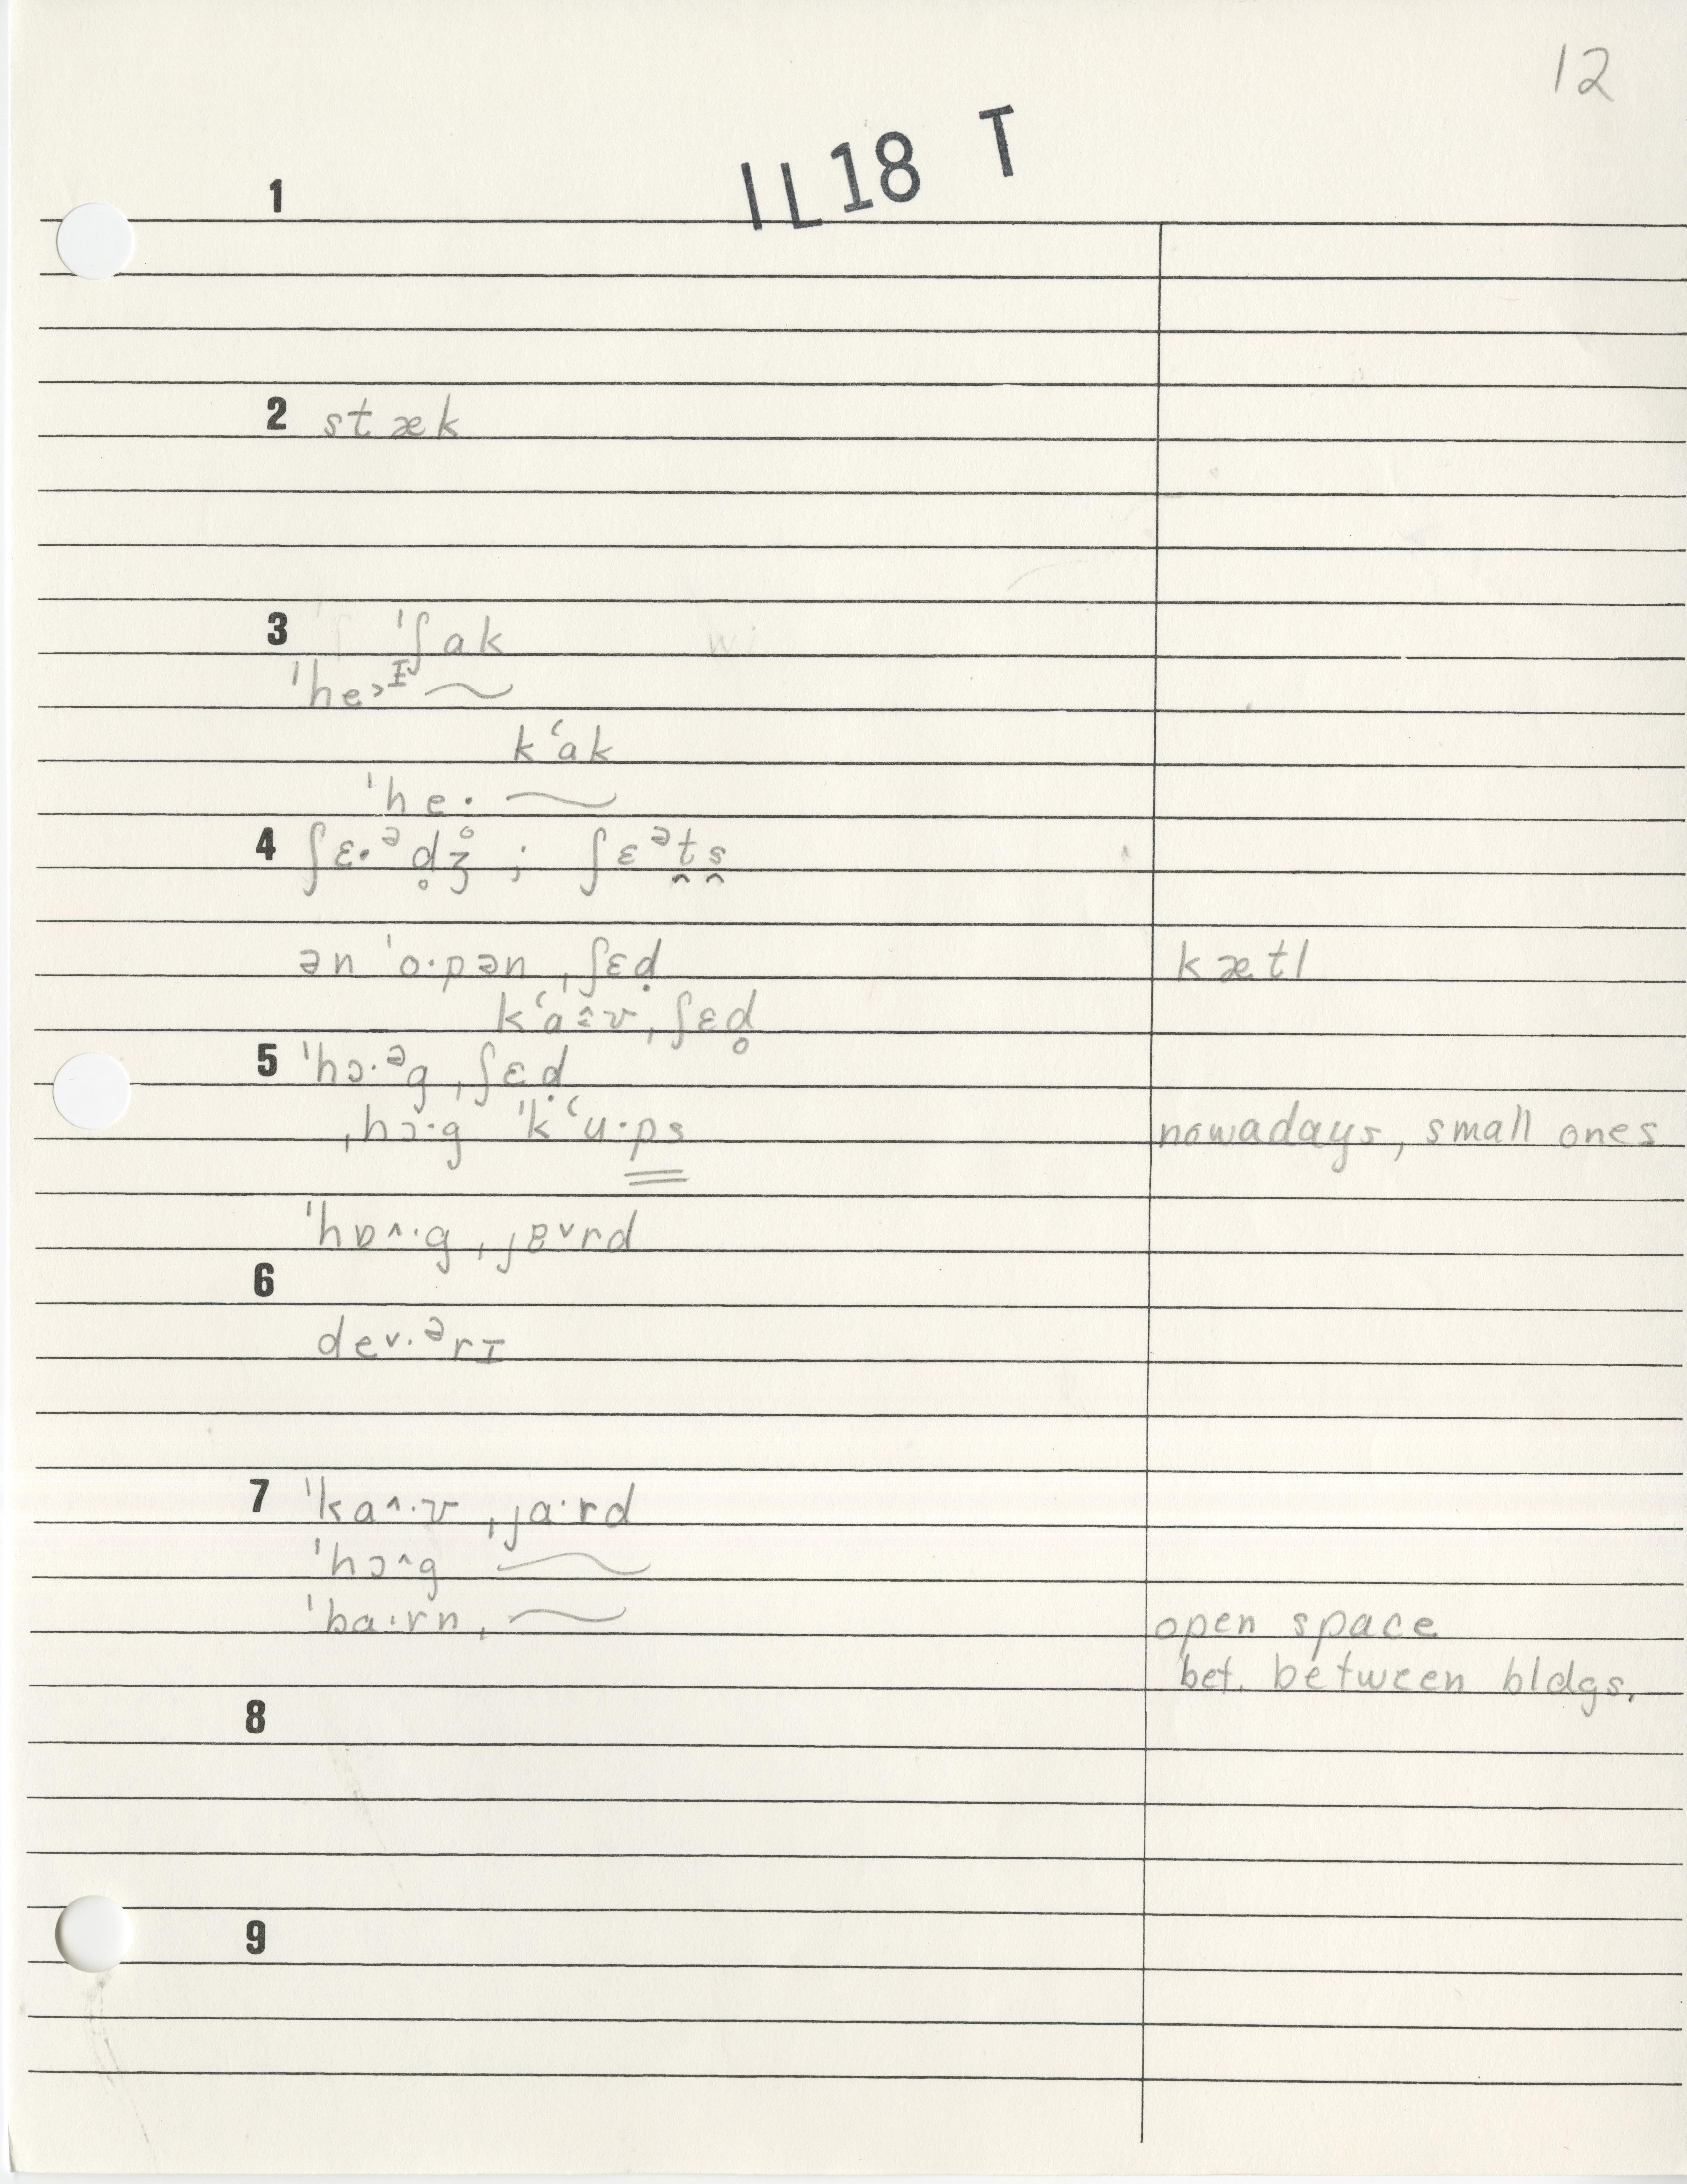 12
IL18 T
1
2 stæk
3 ˈʃak
ˈhe˃ᴵ ~
kʻak
ˈhe· ~
4 ʃɛ·ᵊd̥ʒ̊ ; ʃɛᵊt̯s̯
ən ˈo·pən ˌʃɛḍ kætl
kʻa˄ʊ ˌʃɛd̥
5 ˈhɔ·ᵊg ˌʃɛḍ
ˌhɔ·g ˈkʻu·ps nowadays, small ones
ˈhɒ˄·g ˌjɐ˅rd
6
de˅·ᵊrɪ
7 ˈka˄·ʊ ˌja·rd
ˈhɔ˄g ~
ˈba·rn ˌ~ open space
bet. between bldgs.
8
9